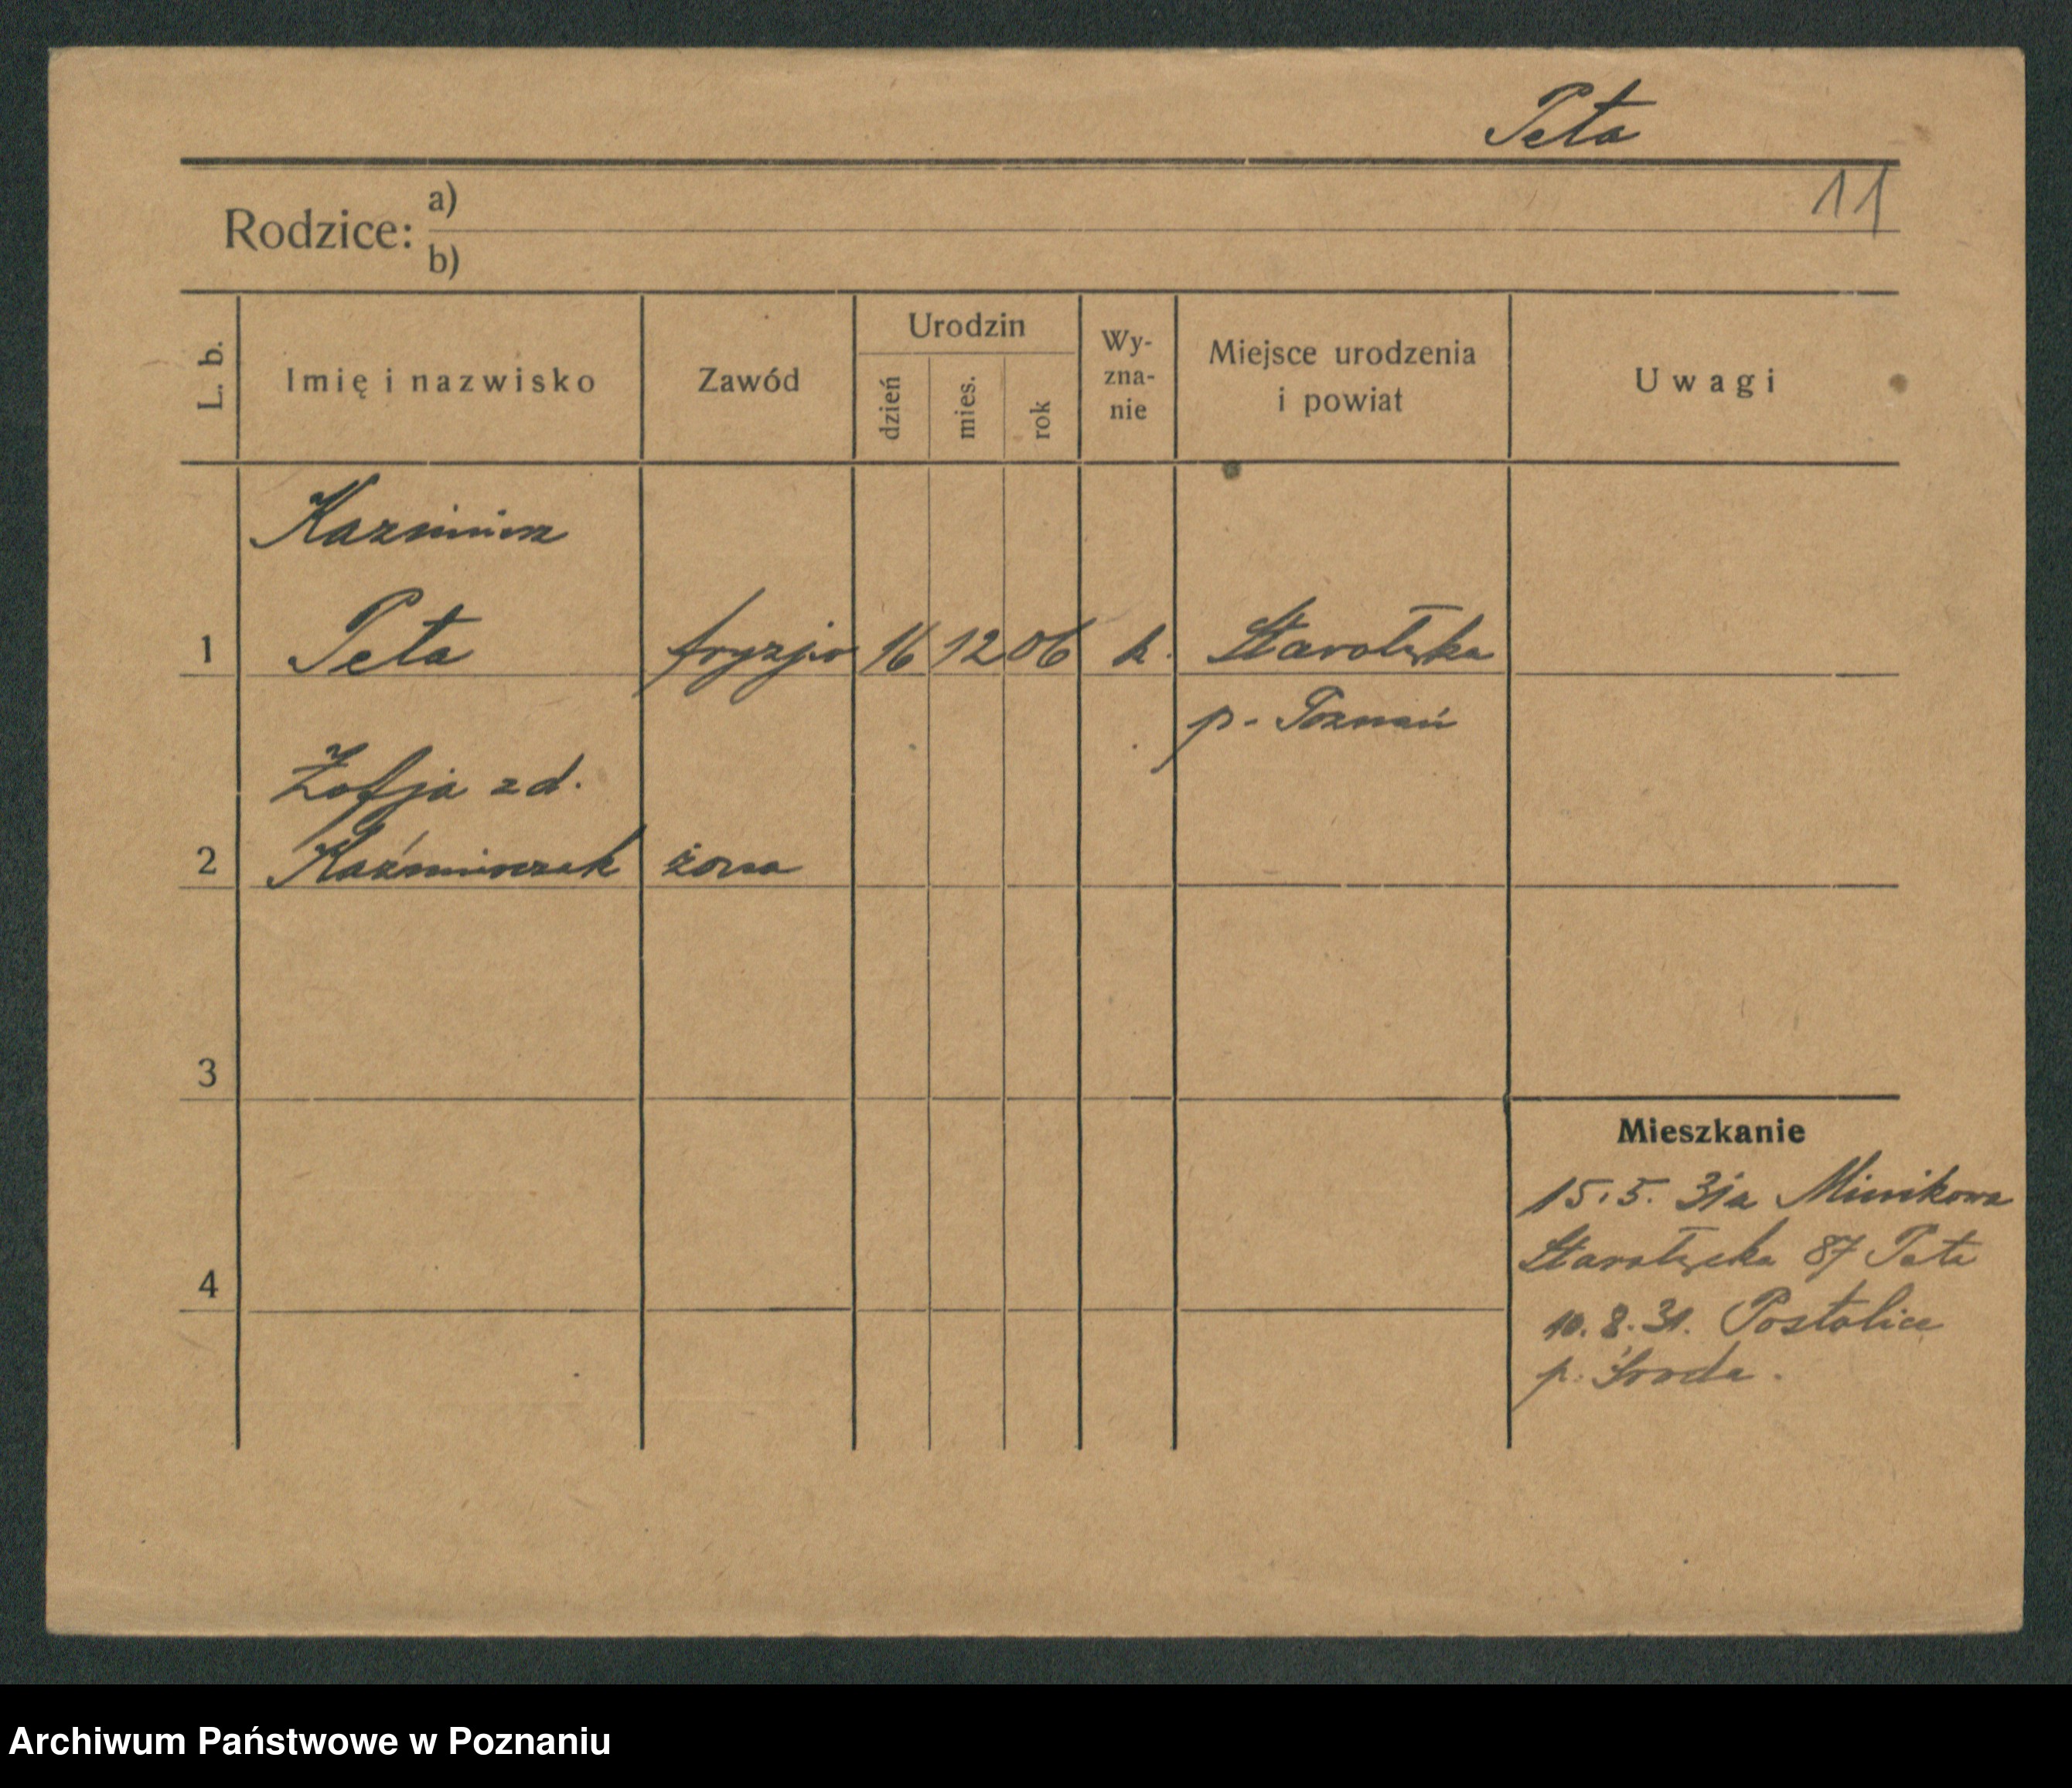 Peta
11
Rodzice: a)
b)
L. b.
Imię i nazwisko
Zawód
Urodzin
dzień
mies.
rok
Wy-
zna-
nie
Miejsce urodzenia
i powiat
Uwagi
Kazimierz
1 Peta fryzjer 16 12 06 k. Starołęka
p. Poznań
Zofja zd.
2 Kaźmierczak żona
3
4
Mieszkanie
15.5. 31 z Minikowa
Starołęcka 87 Peta
10.8.31. Postolice
p. Środa.
Archiwum Państwowe w Poznaniu